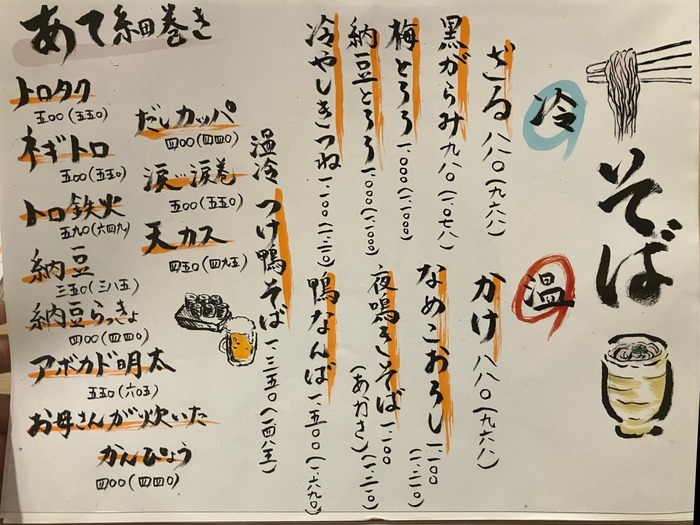 そば
冷
ざる 八八〇(九六八)
黒がらみ 九八〇(一、〇七八)
梅とろろ 一、〇〇〇(一、一〇〇)
納豆とろろ 一、〇〇〇(一、一〇〇)
冷やしきつね 一、一〇〇(一、二一〇)
温
かけ 八八〇(九六八)
なめこおろし 一、一〇〇(一、二一〇)
夜鳴きそば(あかさ) 一、一〇〇(一、二一〇)
鴨なんば 一、五〇〇(一、六九〇)
温冷 つけ鴨そば 一、三五〇(一四八五)
あて細巻き
トロタク
五〇〇(五五〇)
ネギトロ
五〇〇(五五〇)
トロ鉄火
五九〇(六四九)
納豆
三五〇(三八五)
納豆らっきょ
四〇〇(四四〇)
アボカド明太
五五〇(六〇五)
お母さんが炊いた
かんぴょう
四〇〇(四四〇)
だしカッパ
四〇〇(四四〇)
涙涙巻
五〇〇(五五〇)
天カス
四五〇(四九五)